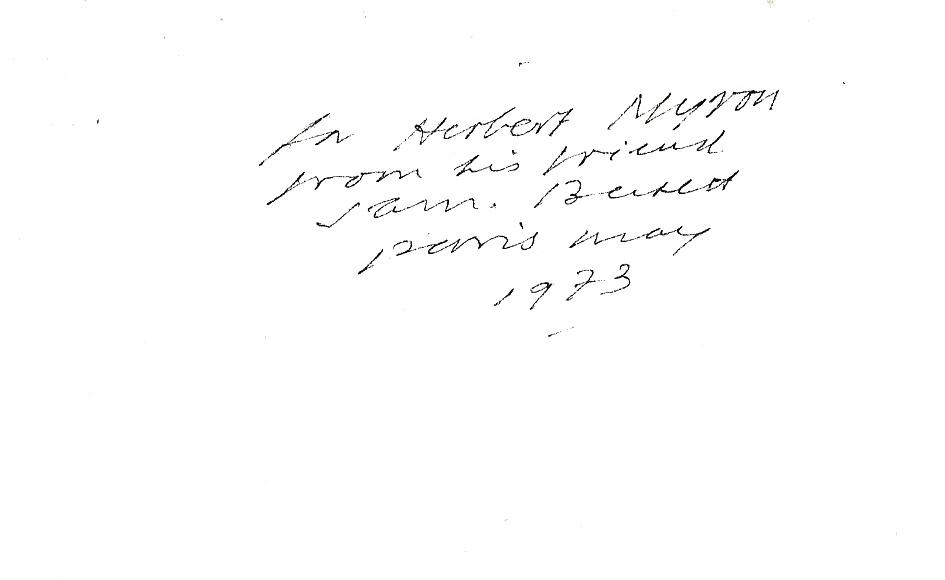 for Herbert Myron
from his friend
Sam. Beckett
Paris May
1973